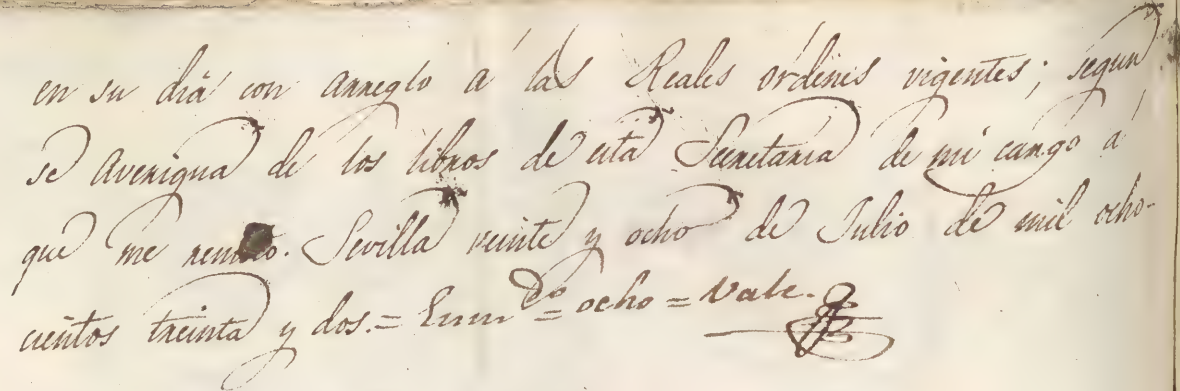 en su dia con arreglo á las Reales ordenes vigentes; segun
se averigua de los libros de esta Secretaría de mi cargo á
que me remito. Sevilla veinte y ocho de Julio de mil ocho-
cientos treinta y dos.= Enmdo = ocho = Vale.